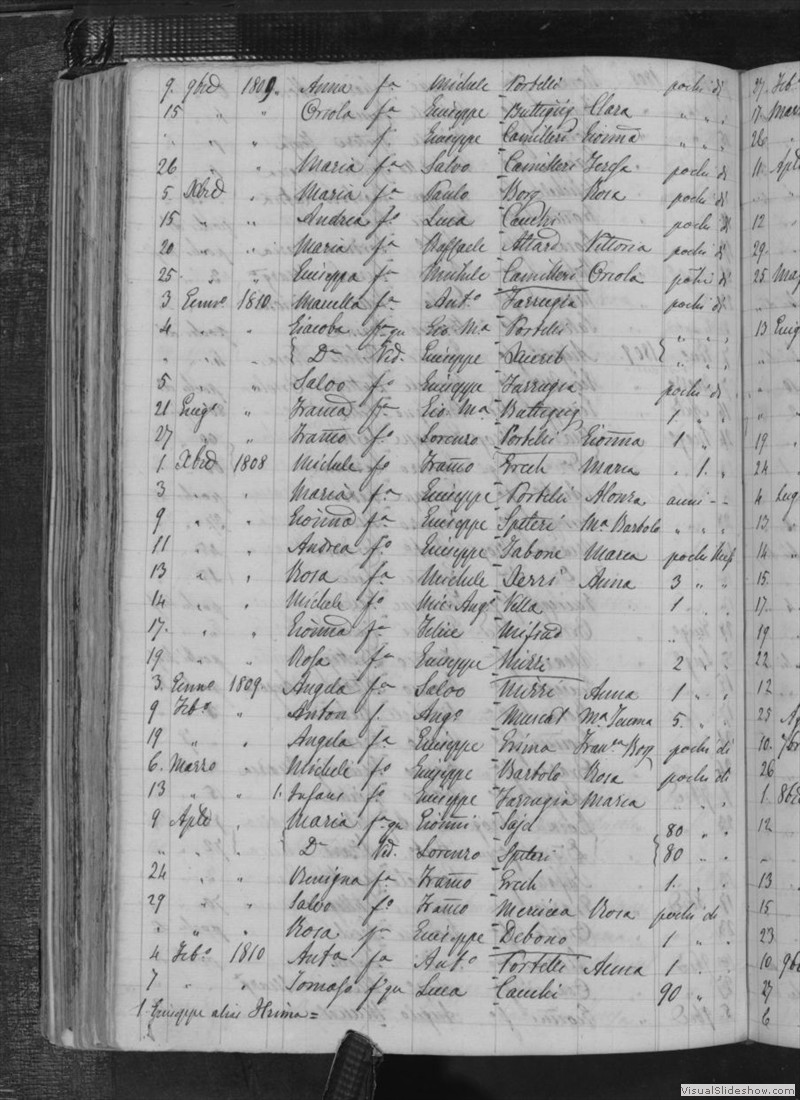 9. 9bre 1809. Anna fa Michele Portelli pochi di
15 " " Orsola fa Giuseppe Buttigieg Clara " " "
" " " f Giuseppe Camilleri Gionna " " "
26 " Maria fa Salvo Camilleri Teresa pochi di
5 Xbre " Maria fa Paulo Borg Rosa pochi di
15 " " Andrea fo Luca Cauchi pochi di
20 " " Maria fa Raffaele Attard Vittoria pochi di
25 " " Giuseppa fa Michele Camilleri Orsola pochi di
3 Genno 1810. Marella fa Anto Farrugia pochi di
4 " " Giacoba fa qu Gio Ma Portelli " " "
" " { Da Ved. Giuseppe { " " "
5 " " Salvo fo Giuseppe Farrugia pochi di
21 Giugo " Franca fa Gio. Ma Buttigieg 1 " "
27 " " Franco fo Lorenzo Portelli Gionna 1 " "
1. Xbre 1808 Michele fo Franco Grech Maria " 1. "
3 " " Maria fa Giuseppe Portelli anni --
9 " " Gionna fa Giuseppe Spiteri Ma Bartolo " " "
11 " " Andrea fo Giuseppe Tabone Maria pochi
13 " " Rosa fa Michele Xerri Anna 3 " "
14 " " Michele fo Mic. Ango Vella 1 " "
17. " " Gionna fa Felice Mifsud " "
19 " " Rosa fa Giuseppe Mizzi 2 " "
3. Genno 1809. Angela fa Salvo Mizzi Anna 1 " "
9 Febo " Anton f. Ango Muscat Ma 5. " "
19 " " Angela fa Giuseppe Grima Franca Borg pochi di
6. Marzo " Michele fo Giuseppe Bartolo Rosa pochi di
13 " " 1. Infans fo Giuseppe Farrugia Maria " "
9 Aple " { Maria fa qu Gionni Said { 80 " "
" " " { Da Ved. Lorenzo Spiteri { 80 " "
24 " " Benigna fa Franco Grech 1. " "
29 " " Salvo fo Franco Mercieca Rosa pochi di
" " " Rosa fa Giuseppe Debono 1 " "
4 Febo 1810 Anta fa Anto Portelli Anna 1 " "
7 " " Tomaso fo qu Luca Cauchi 90 "
1 Giuseppe alius Grima =
27 Feb
17 Mar
26
11 Apl
12
29
25 Mag
13 Giug
19
24
4 Lug
13
14
15
17
19
22
12
25 Ag
10. 7br
26
1. 8br
12
13
15
23
10 9br
27
6
VisualSlideshow.com